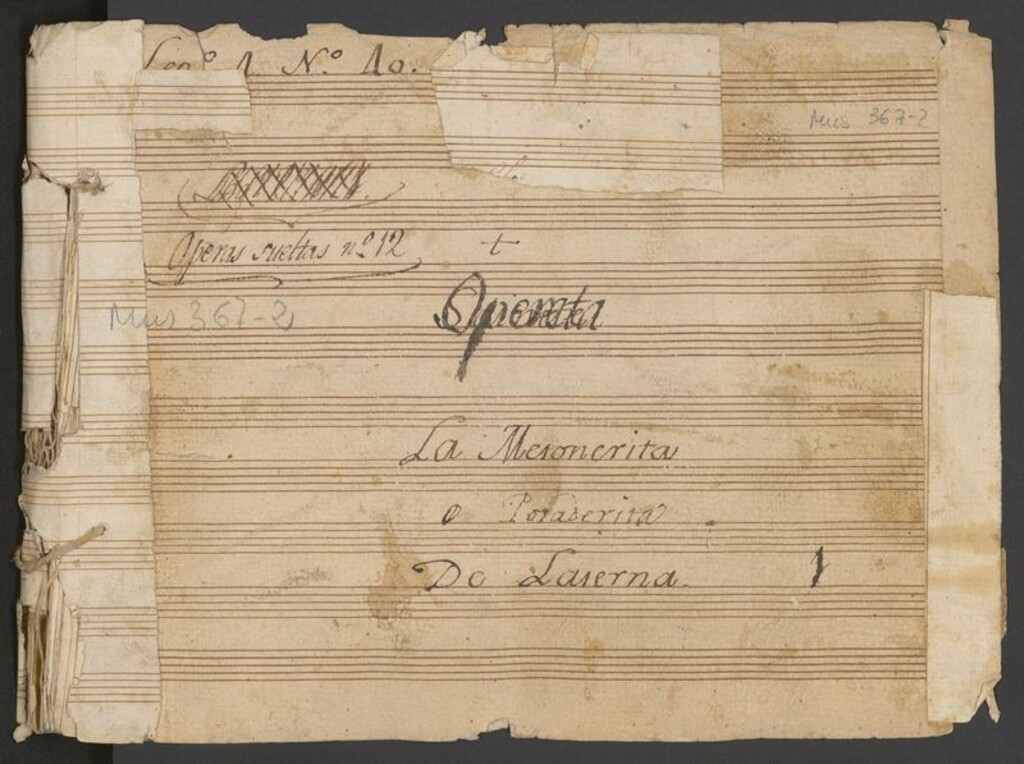 Leg.º 1 N.º 10.
Mus 367-2
Operas sueltas nº 12
Mus 367-2
Opereta
La Mesonerita
o Posaderita
De Laserna. 1